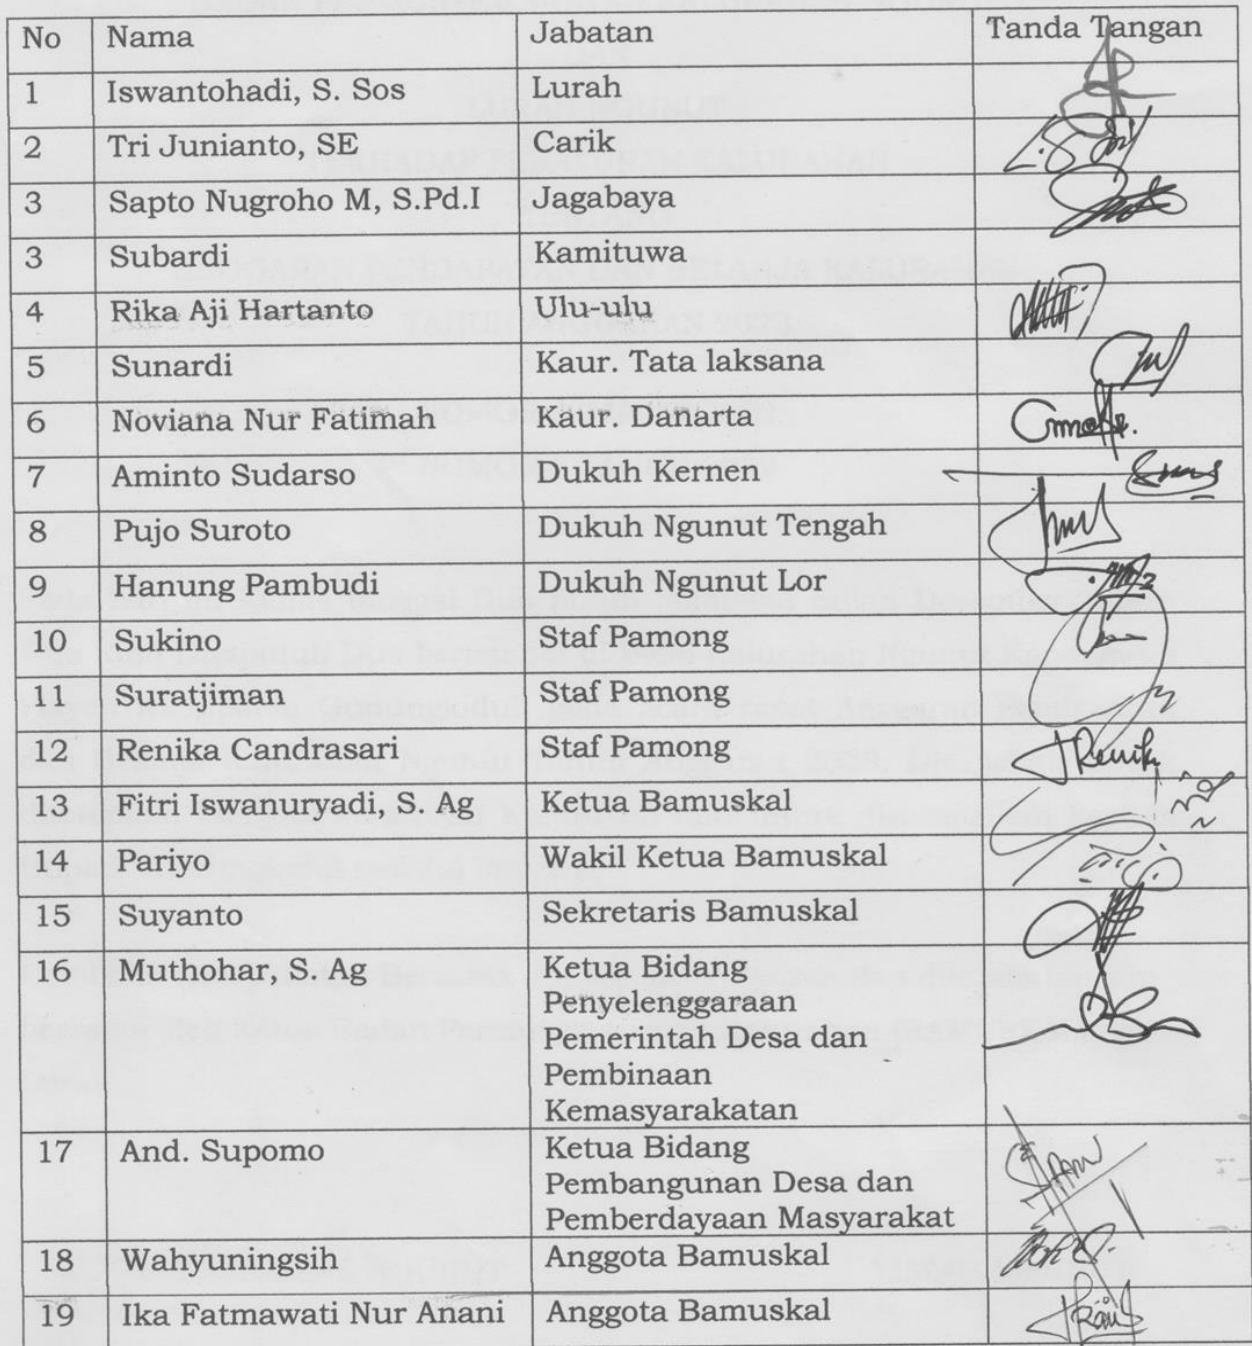 No Nama Jabatan Tanda Tangan
1 Iswantohadi, S. Sos Lurah
2 Tri Junianto, SE Carik
3 Sapto Nugroho M, S.Pd.I Jagabaya
3 Subardi Kamituwa
4 Rika Aji Hartanto Ulu-ulu
5 Sunardi Kaur. Tata laksana
6 Noviana Nur Fatimah Kaur. Danarta
7 Aminto Sudarso Dukuh Kernen
8 Pujo Suroto Dukuh Ngunut Tengah
9 Hanung Pambudi Dukuh Ngunut Lor
10 Sukino Staf Pamong
11 Suratjiman Staf Pamong
12 Renika Candrasari Staf Pamong
13 Fitri Iswanuryadi, S. Ag Ketua Bamuskal
14 Pariyo Wakil Ketua Bamuskal
15 Suyanto Sekretaris Bamuskal
16 Muthohar, S. Ag Ketua Bidang
Penyelenggaraan
Pemerintah Desa dan
Pembinaan
Kemasyarakatan
17 And. Supomo Ketua Bidang
Pembangunan Desa dan
Pemberdayaan Masyarakat
18 Wahyuningsih Anggota Bamuskal
19 Ika Fatmawati Nur Anani Anggota Bamuskal